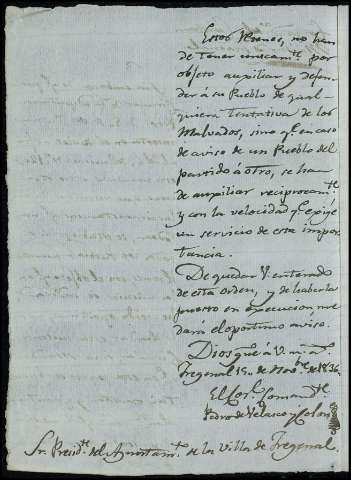 Estos Urbanos, no han
de tener unicamte. por
objeto auxiliar y defen-
der á su Pueblo de qual-
quiera Tentativa de los
Malvados, sino qe. en caso
de aviso de un Pueblo del
partido á otro, se han
de auxiliar reciprocamte.
y con la velocidad qe. exige
un servicio de esta impor-
tancia.
De quedar V. enterado
de esta orden, y de haberla
puesto en execucion me
dará el oportuno aviso.
Dios gue á V. m. a.
Fregenal 15,, de Nove. de 1836.
El Corl. Comandte.
Pedro de Velasco y Colon
Sr. Presidte. del Ayuntamto. de la Villa de Fregenal.